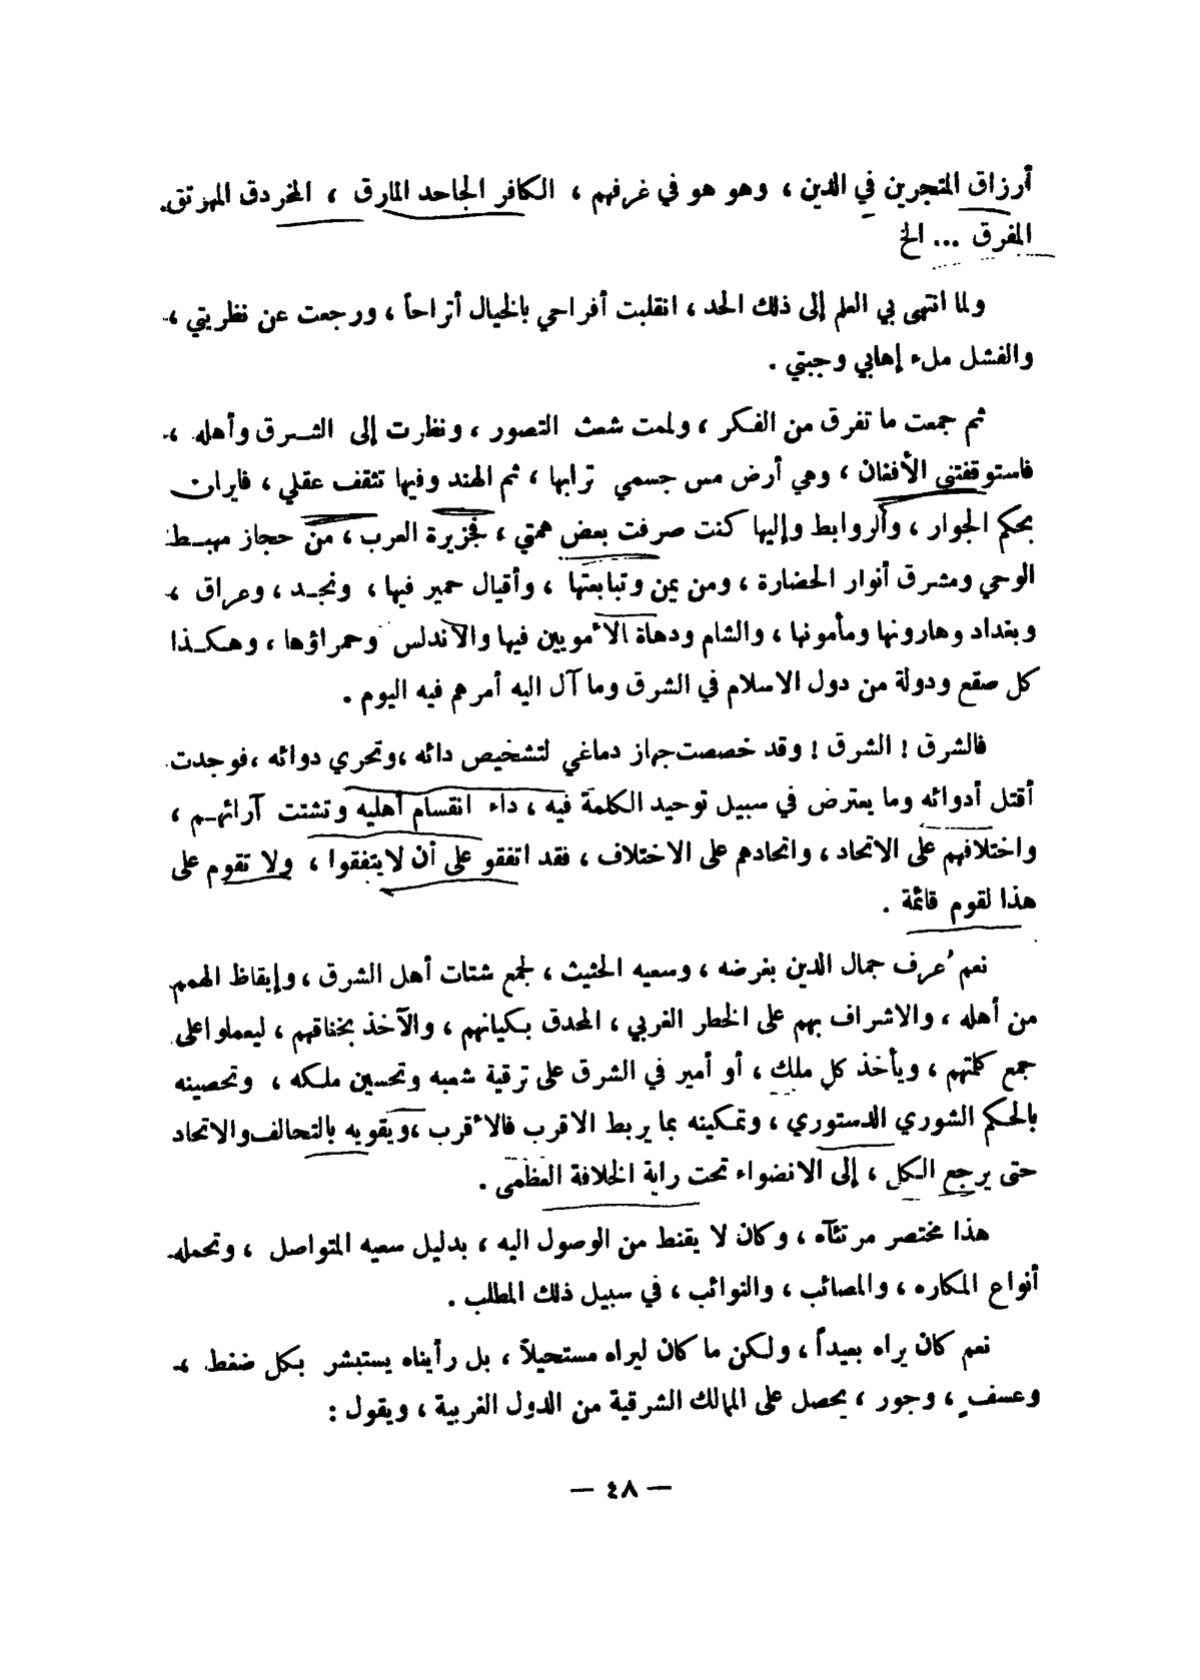 أرزاق المتجرين في الدين ، وهو هو في غرفهم ، الكافر الجاحد المارق ، المخردق المهرتق
المفرق ... الخ
ولما انتهى بي العلم إلى ذلك الحد ، انقلبت أفراحي بالخيال أتراحاً ، ورجعت عن نظريتي ،
والفشل ملء إهابي وجبتي .
ثم جمعت ما تفرق من الفكر ، ولممت شعث التصور ، ونظرت إلى الشرق وأهله ،
فاستوقفتني الأفغان ، وهي أرض مس جسمي ترابها ، ثم الهند وفيها تثقف عقلي ، فايران
بحكم الجوار ، والروابط وإليها كنت صرفت بعض همتي ، فجزيرة العرب ، من حجاز مهبط
الوحي ومشرق أنوار الحضارة ، ومن يمن وتبابعتها ، وأقيال حمير فيها ، ونجد ، وعراق ،
وبغداد وهارونها ومأمونها ، والشام ودهاة الأمويين فيها والاندلس وحمراؤها ، وهكذا
كل صقع ودولة من دول الاسلام في الشرق وما آل اليه أمرهم فيه اليوم .
فالشرق ! الشرق ! وقد خصصت جهاز دماغي لتشخيص دائه ،وتحري دوائه ،فوجدت
أقتل أدوائه وما يعترض في سبيل توحيد الكلمة فيه ، داء انقسام أهليه وتشتت آرائهم ،
واختلافهم على الاتحاد ، واتحادهم على الاختلاف ، فقد اتفقو على أن لا يتفقوا ، ولا تقوم على
هذا لقوم قائمة .
نعم عُرف جمال الدين بغرضه ، وسعيه الحثيث ، لجمع شتات أهل الشرق ، وإيقاظ الهمم
من أهله ، والاشراف بهم على الخطر الغربي ، المحدق بكيانهم ، والآخذ بخناقهم ، ليعملوا على
جمع كلمتهم ، ويأخذ كل ملك ، أو أمير في الشرق على ترقية شعبه وتحسين ملكه ، وتحصينه
بالحكم الشوري الدستوري ، وتمكينه بما يربط الاقرب فالأقرب ،ويقويه بالتحالف والاتحاد
حتى يرجع الكل ، إلى الانضواء تحت راية الخلافة العظمى .
هذا مختصر مرتئآه ، وكان لا يقنط من الوصول اليه ، بدليل سعيه المتواصل ، وتحمله
أنواع المكاره ، والمصائب ، والنوائب ، في سبيل ذلك المطلب .
نعم كان يراه بعيداً ، ولكن ما كان ليراه مستحيلاً ، بل رأيناه يستبشر بكل ضغط ،
وعسف ، وجور ، يحصل على الممالك الشرقية من الدول الغربية ، ويقول :
— ٤٨ —